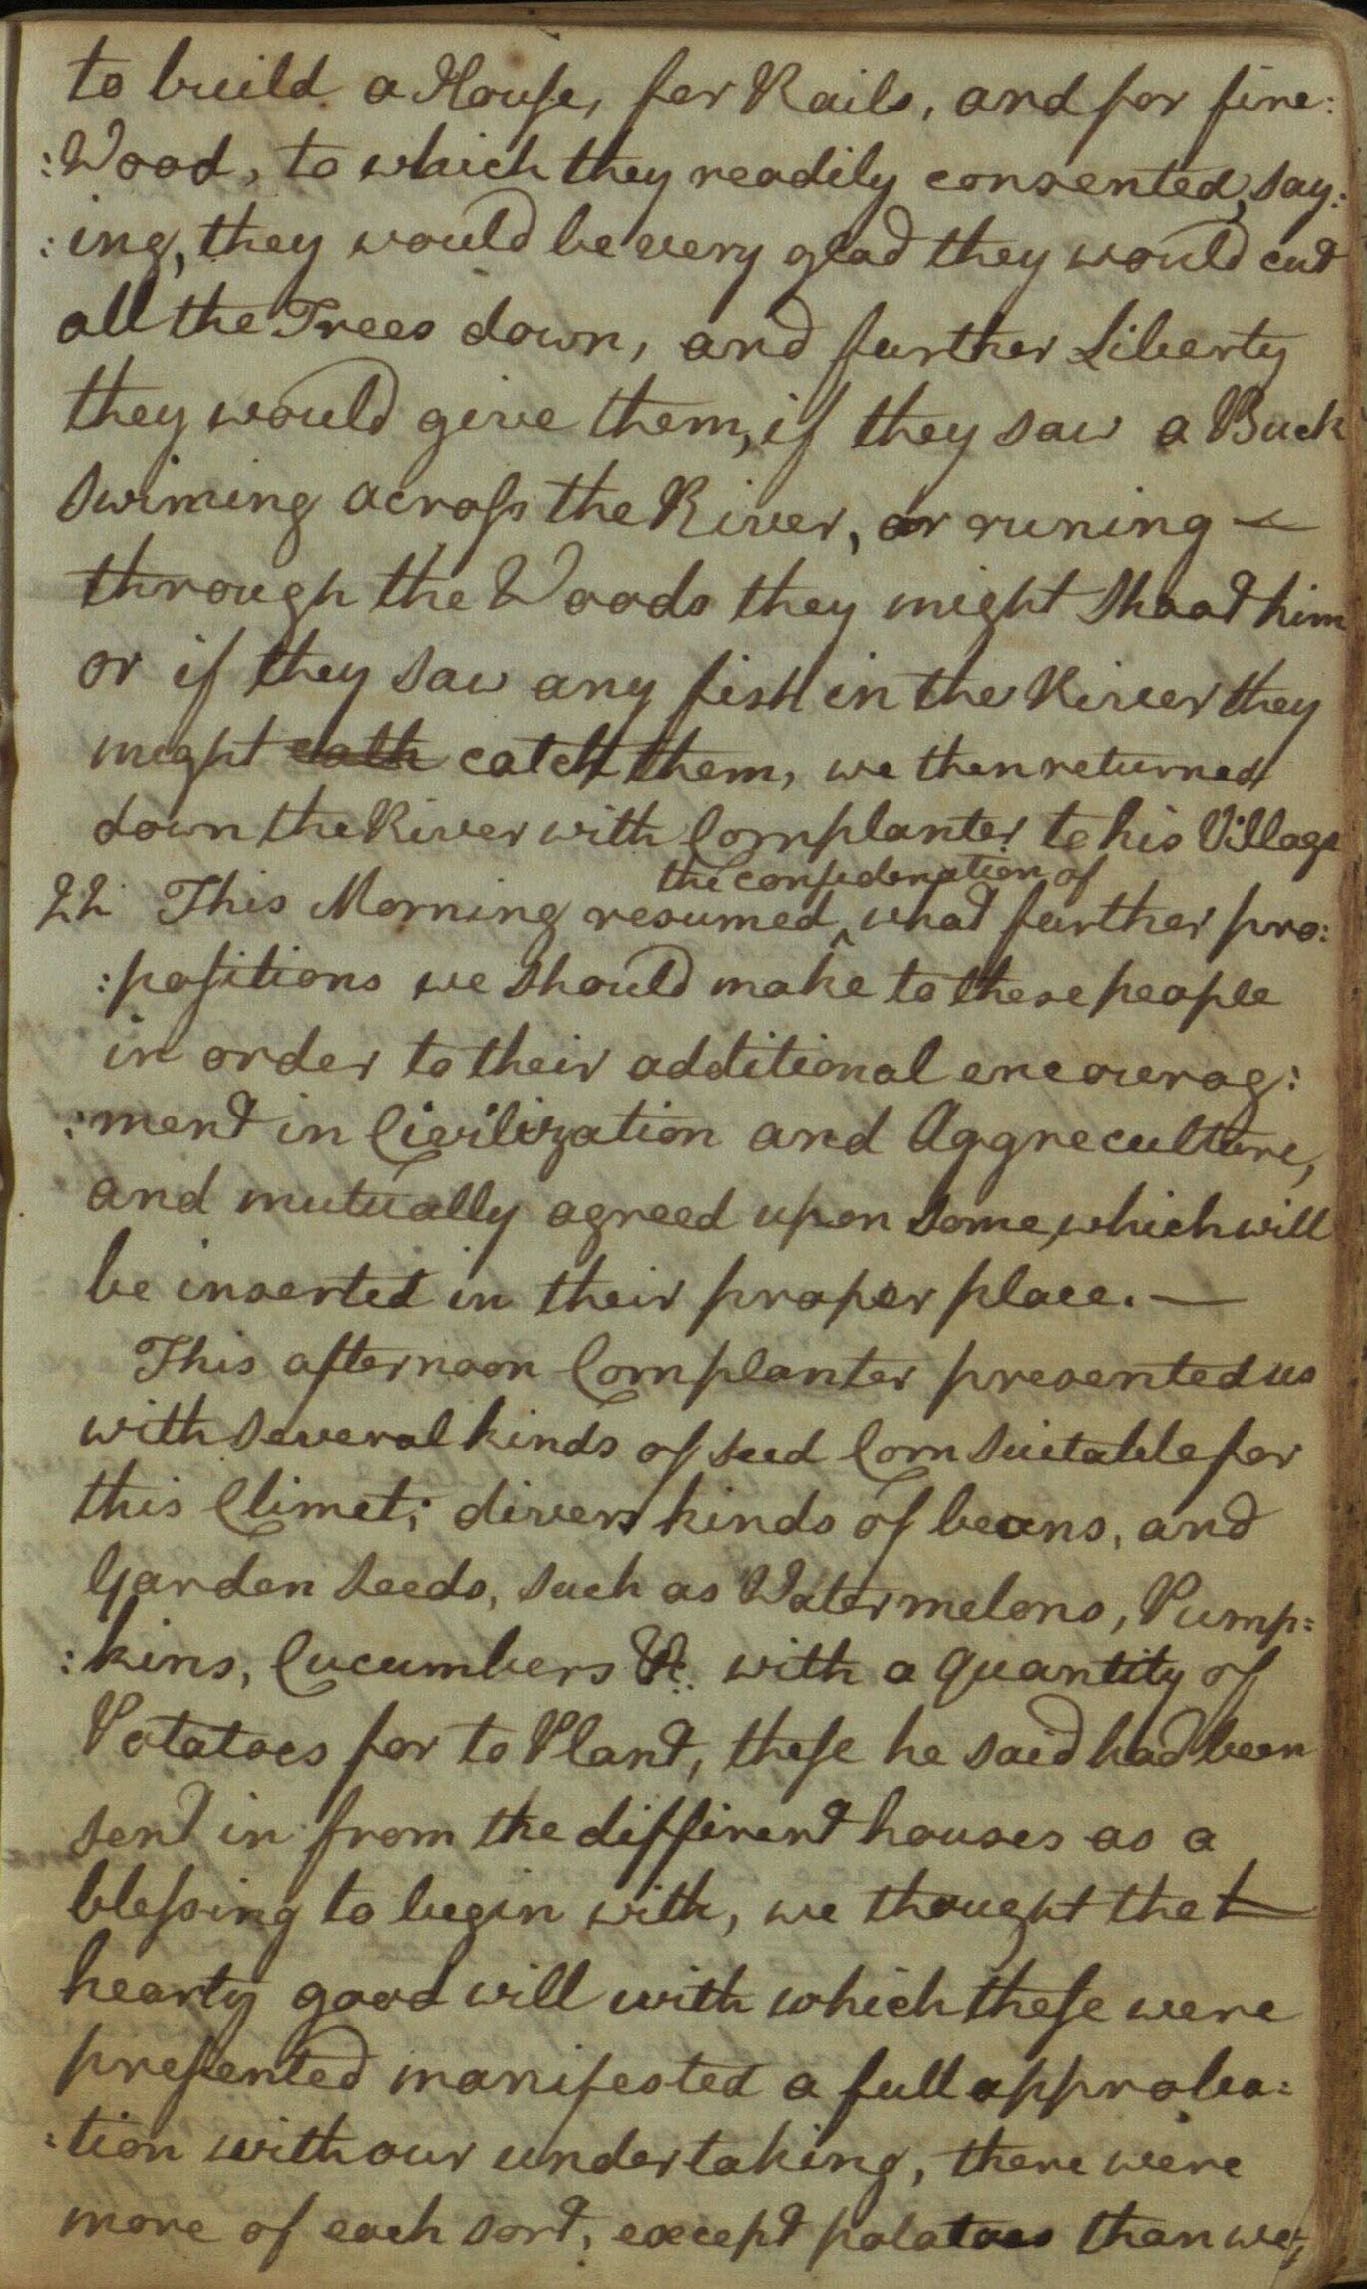 to build a House, for Rails, and for fire:
:Wood, to which they readily consented, say:
:ing, they would be very glad they would cut
all the Trees down, and further Liberty
they would give them, if they saw a Buck
swiming across the River, or runing —
through the Woods they might Shoot him
or if they saw any fish in the River they
might cath catch them, we then returned
down the River with Cornplanter to his Village
the consideration of
22 This Morning resumed ^ what further pro:
:positions we should make to these people
in order to their additional encourag:
:ment in Civilization and Aggreculture,
and mutually agreed upon some, which will
be inserted in their proper place. —
This afternoon Cornplanter presented us
with several kinds of seed Corn suitable for
this Climet; divers kinds of beans, and
Garden Seeds, such as Watermelons, Pump=
:kins, Cucumbers &c. with a quantity of
Potatoes for to Plant, these he said had been
sent in from the different houses as a
blessing to begin with, we thought the t
hearty good will with which these were
presented manifested a full approba=
:tion with our undertaking, there were
more of each sort, except potatoes than we